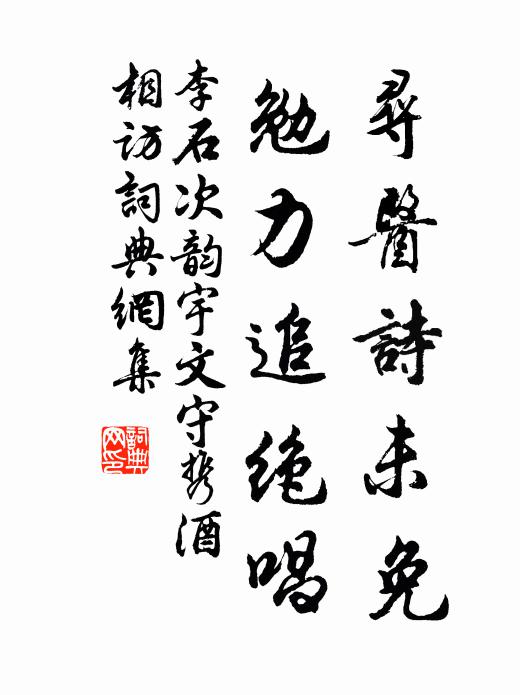 尋醫詩未免
勉力追绝唱
李石次韵宇文守携酒
相訪詞典網集
詞典
网印